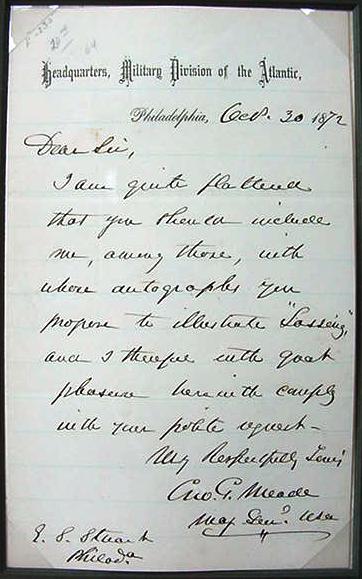 Headquarters, Military Division of the Atlantic,
Philadelphia, Oct. 30 1872
Dear Sir,
I am quite flattered
that you should include
me, among those, with
whose autographs you
propose to illustrate "Lossing",
and I therefore with great
pleasure herewith comply
with your polite request–
Very Respectfully Yours
Geo. G. Meade
Maj. Genl. USA
E. S. Stuart
Philada